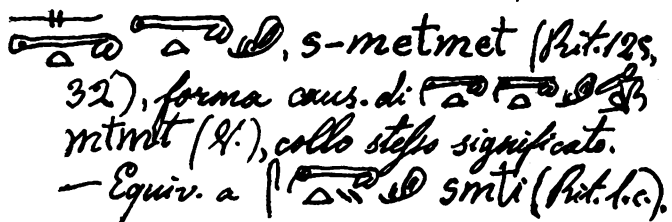 , s-metmet (Rit. 125,
32), forma caus. di
mtmt (V.), collo steſso significato.
— Equiv. a smti (Rit. l. c.).